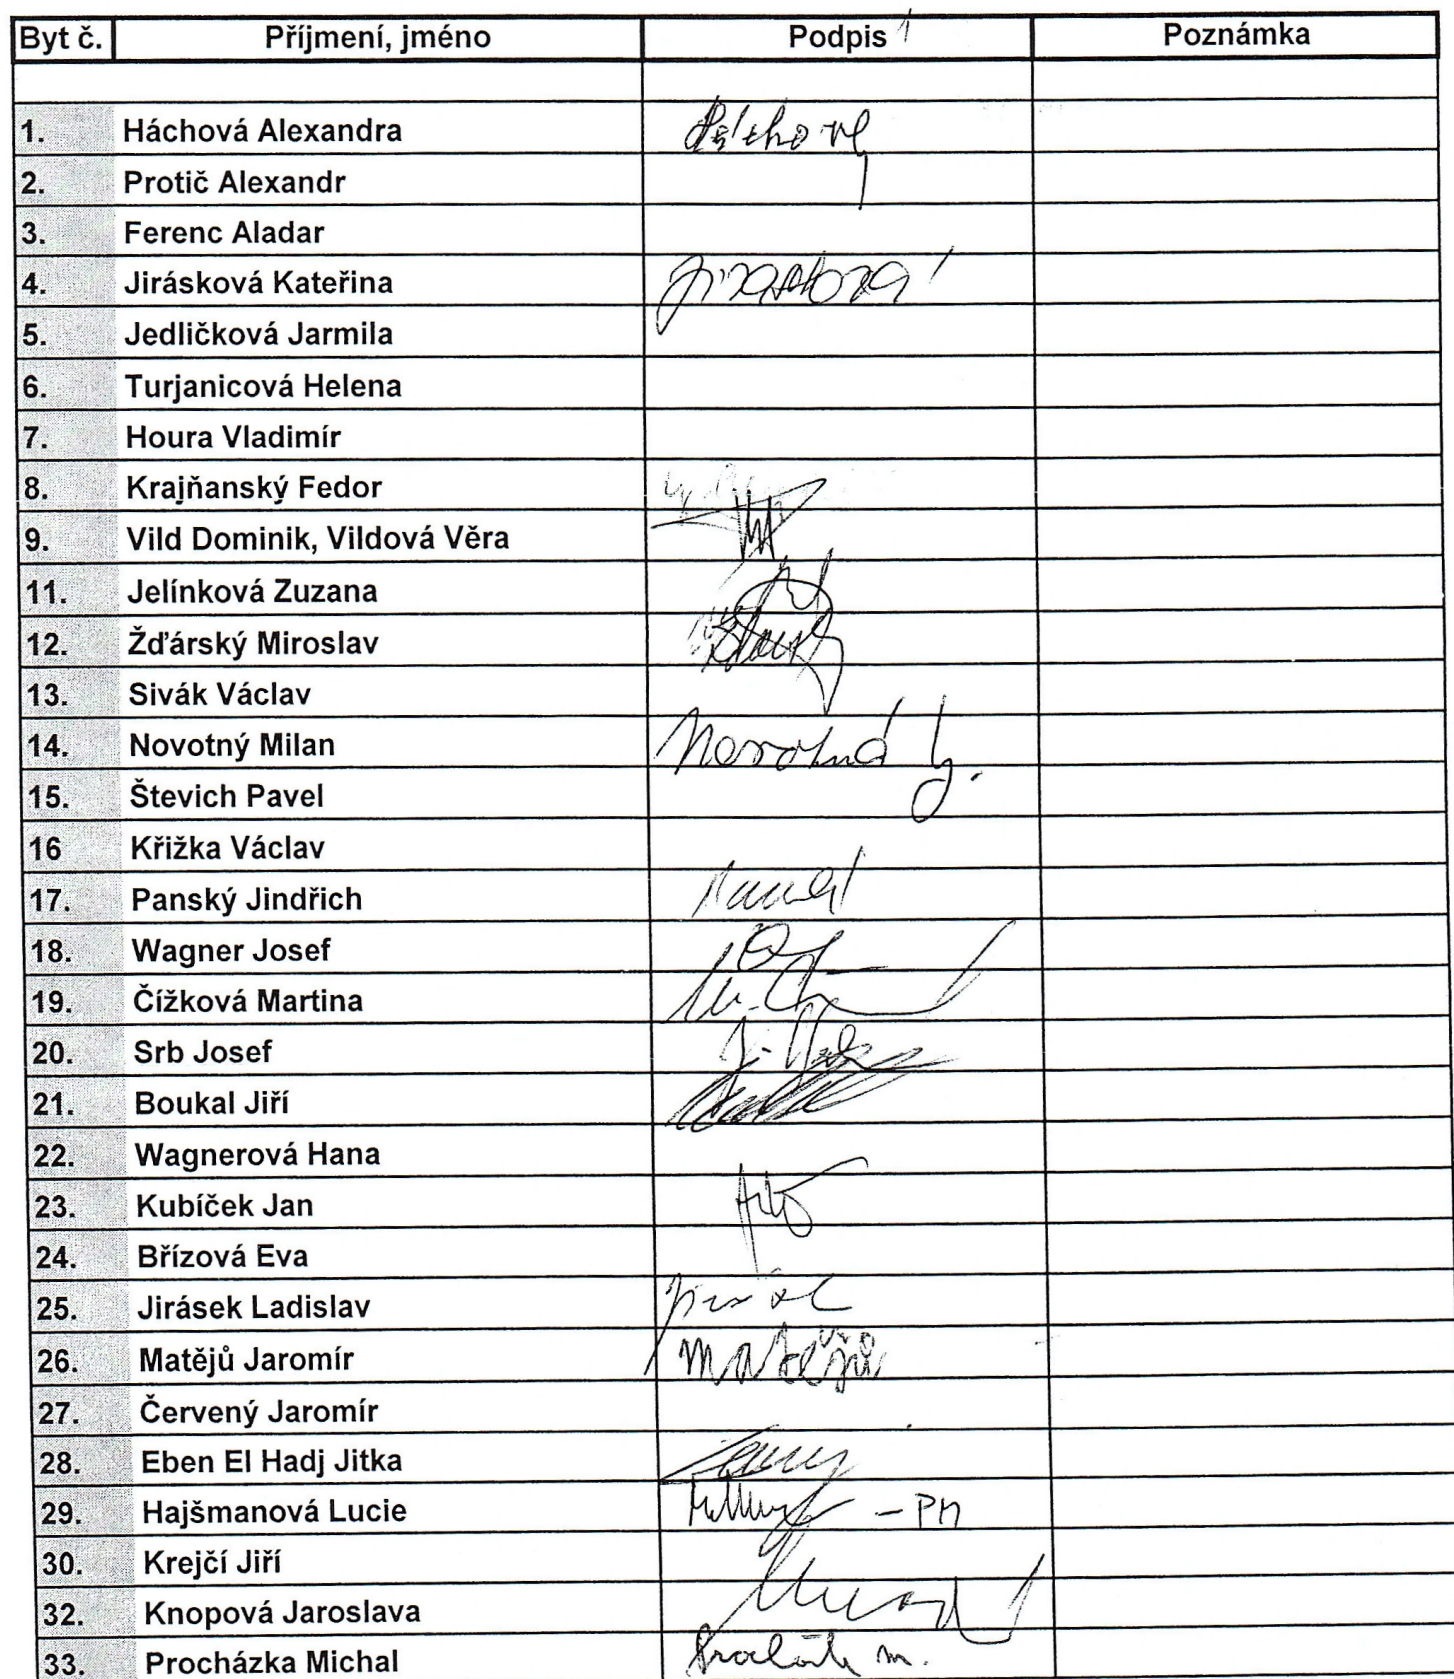 Byt č. Příjmení, jméno Podpis Poznámka
1. Háchová Alexandra
2. Protič Alexandr
3. Ferenc Aladar
4. Jirásková Kateřina
5. Jedličková Jarmila
6. Turjanicová Helena
7. Houra Vladimír
8. Krajňanský Fedor
9. Vild Dominik, Vildová Věra
11. Jelínková Zuzana
12. Žďárský Miroslav
13. Sivák Václav
14. Novotný Milan
15. Števich Pavel
16 Křižka Václav
17. Panský Jindřich
18. Wagner Josef
19. Čížková Martina
20. Srb Josef
21. Boukal Jiří
22. Wagnerová Hana
23. Kubíček Jan
24. Břízová Eva
25. Jirásek Ladislav
26. Matějů Jaromír Matějů
27. Červený Jaromír
28. Eben El Hadj Jitka
29. Hajšmanová Lucie
30. Krejčí Jiří
32. Knopová Jaroslava
33. Procházka Michal